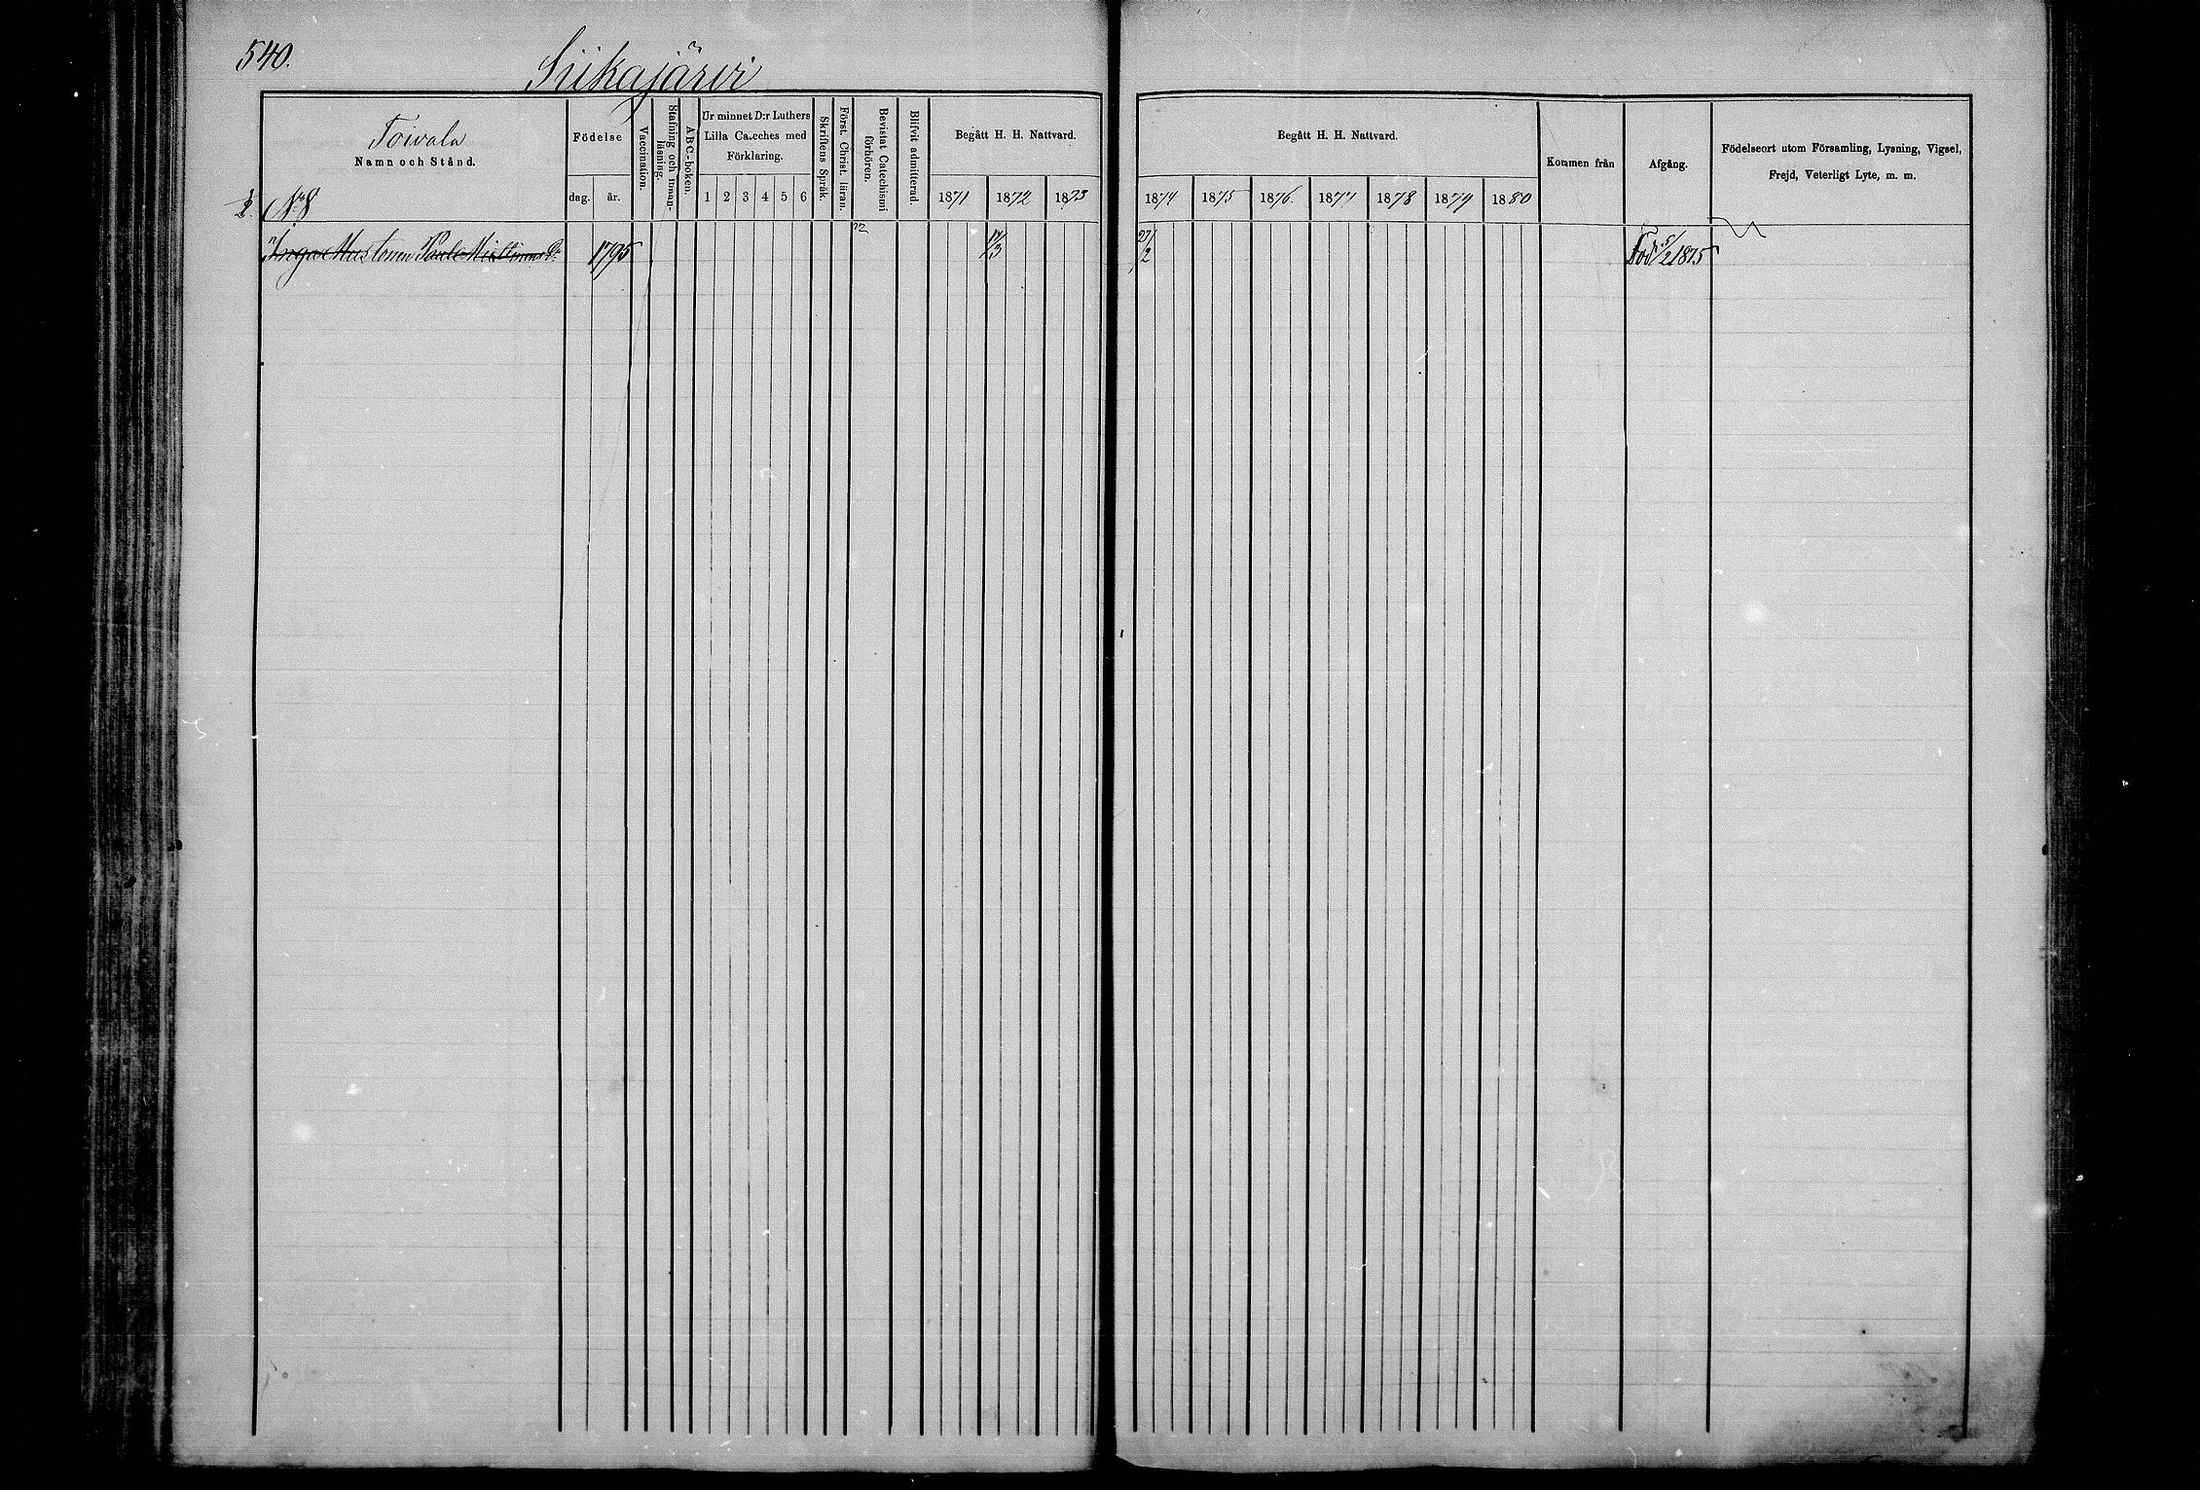 540.
Siikajärvi
Toivola
Namn och Stånd.
2. No 8
Födelse
dag. år.
Vaccination.
Stafning och innan-läsning.
ABC-boken.
Ur minnet D:r Luthers
Lilla Cateches med
Förklaring.
1 2 3 4 5 6
Skriftens Språk.
Först. Christ. läran.
Bevistat Catechismi förhören.
Blifvit admitterad.
Begått H. H. Nattvard.
1871 1872 1873
Begått H. H. Nattvard.
1874 1875 1876. 1877 1878 1879 1880
Kommen från
Afgång.
Födelseort utom Församling, Lysning, Vigsel,
Frejd, Veterligt Lyte, m. m.
Inga Mustonen 1795 17/3 27/2 Död 5/2 1875